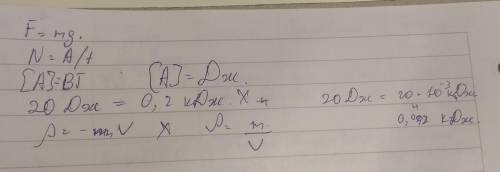 F = mg.
N = A/t
[A]=Вт [A] = Дж.
20 Дж = 0,2 кДж. X 20 Дж = 20 · 10⁻³ кДж
0,02 кДж.
ρ = m,V X ρ = m/V